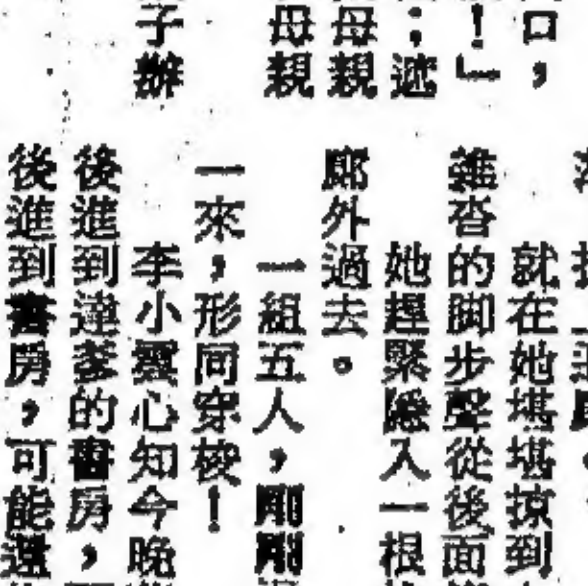 口，
！」
；遞
母親
母親
子辦
就在她堪堪掠到
雜沓的腳步聲從後面
她趕緊隱入一根
廊外過去。
一組五人，剛剛
一來，形同穿梭！
李小靈心知今晚
後進到達爹的書房，
後進到書房，可能還